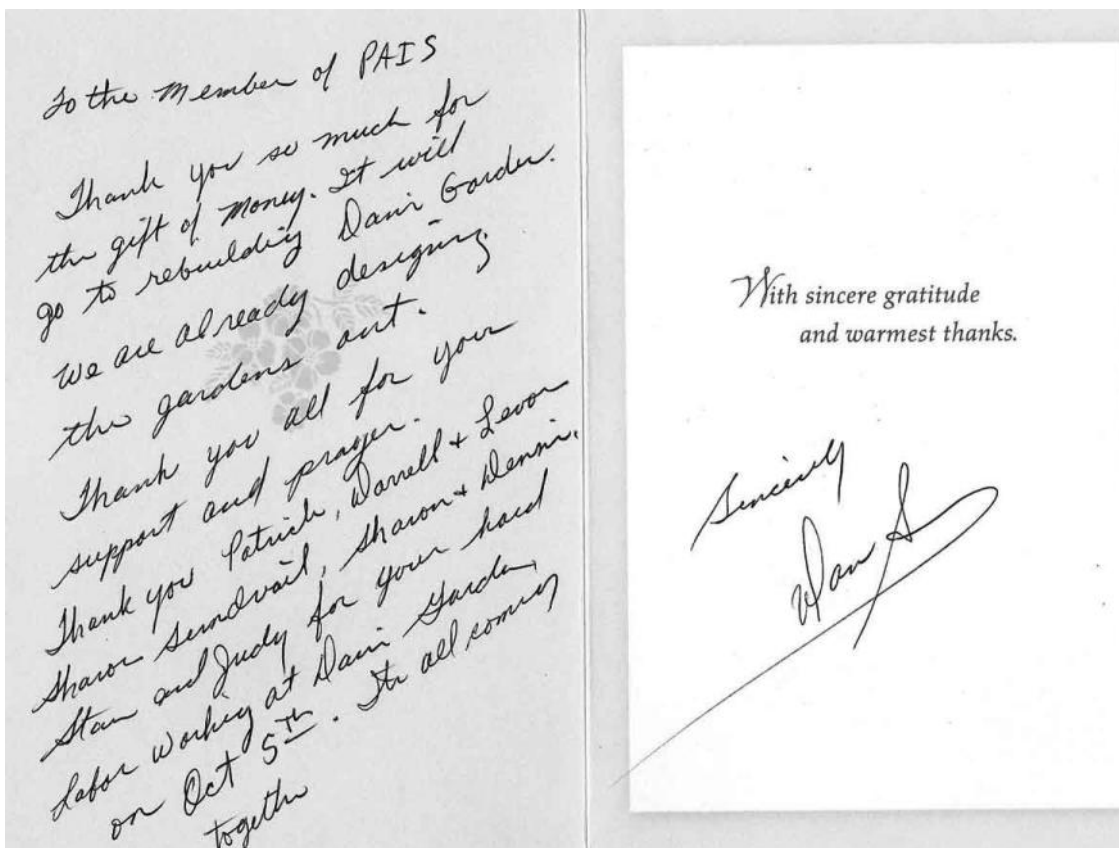 To the Member of PAIS
Thank you so much for
the gift of money. It will
go to rebuilding Dan's Garden.
We are already designing
the gardens out.
Thank you all for your
support and prayer.
Thank you Patrick, Darrell + Levon
Sharon Sundvail, Sharon + Dennis,
Stan and Judy for your hard
Labor working at Dan's Garden,
on Oct 5th. Its all coming
together
With sincere gratitude
and warmest thanks.
Sincerely
Dan S